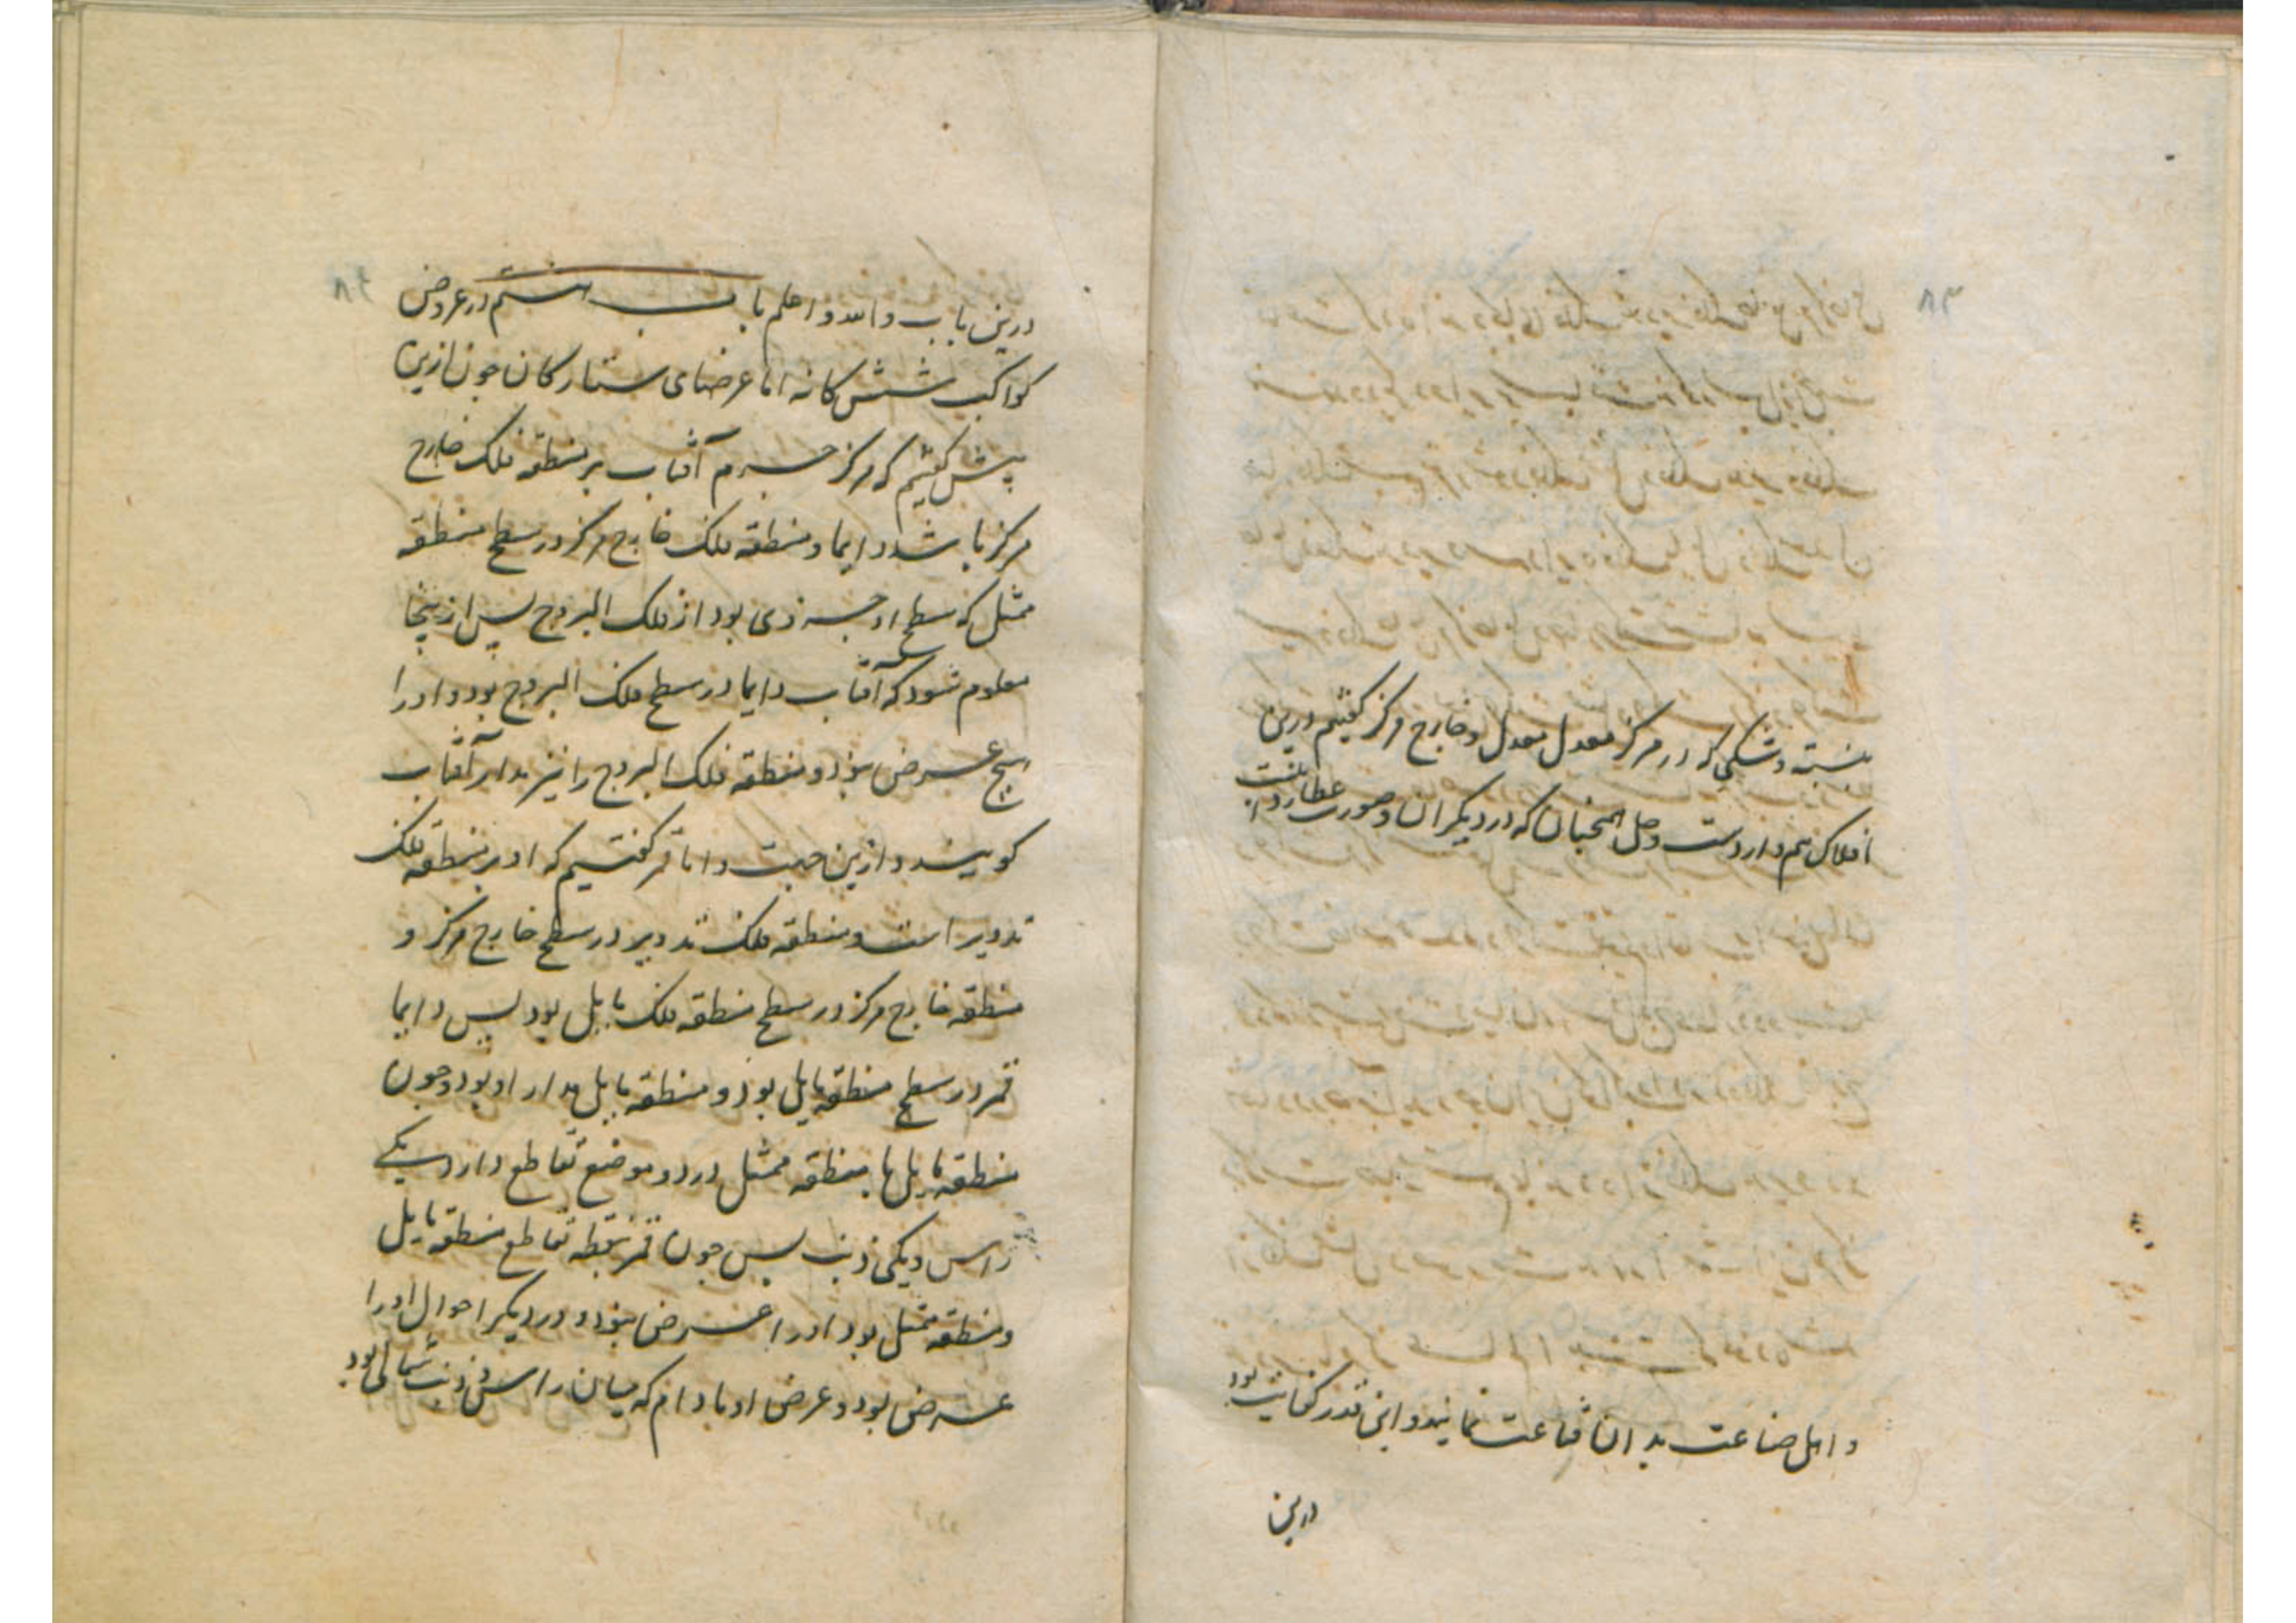 ۸۳
بنسبته و شکی که در مرکز معدل معدل و خارج مرکز کفتیم درین
افلاک هم واردست و حل همچنان که در دیکران و صورت عطارد اینست
و اهل صناعت بدان قناعت نمایند و این قدر کفایت بود
درین
۸۴
درین باب والله اعلم باب هشتم در عروض
کواکب شش کانه اما عرضهای ستارکان جون ازین
پیش کفتیم که مرکز جرم آفتاب بر منطقه فلک خارج
مرکز باشد دایما و منطقه فلک خارج مرکز در سطح منطقه
ممثل که سطح او جزوی بود از فلک البروج پس ازینجا
معلوم شود که آفتاب دایما در سطح فلک البروج بود و او را
هیچ عرض نبود و منطقه فلک البروج را نیز مدار آفتاب
کویند و ازین جهت و اما قمر کفتیم که او بر منطقه فلک
تدویر است و منطقه فلک تدویر در سطح خارج مرکز و
منطقه خارج مرکز در سطح منطقه فلک مایل بود پس دایما
قمر در سطح منطقه مایل بود و منطقه مایل مدار او بود و جون
منطقه مایل با منطقه ممثل در دو موضع تقاطع دارد یکی
راس و یکی ذنب پس جون قمر بنقطه تقاطع منطقه مایل
و منطقه ممثل بود او را عرض نبود و در دیکر احوال او را
عرض بود و عرض او مادام که میان راس و ذنب شمالی بود